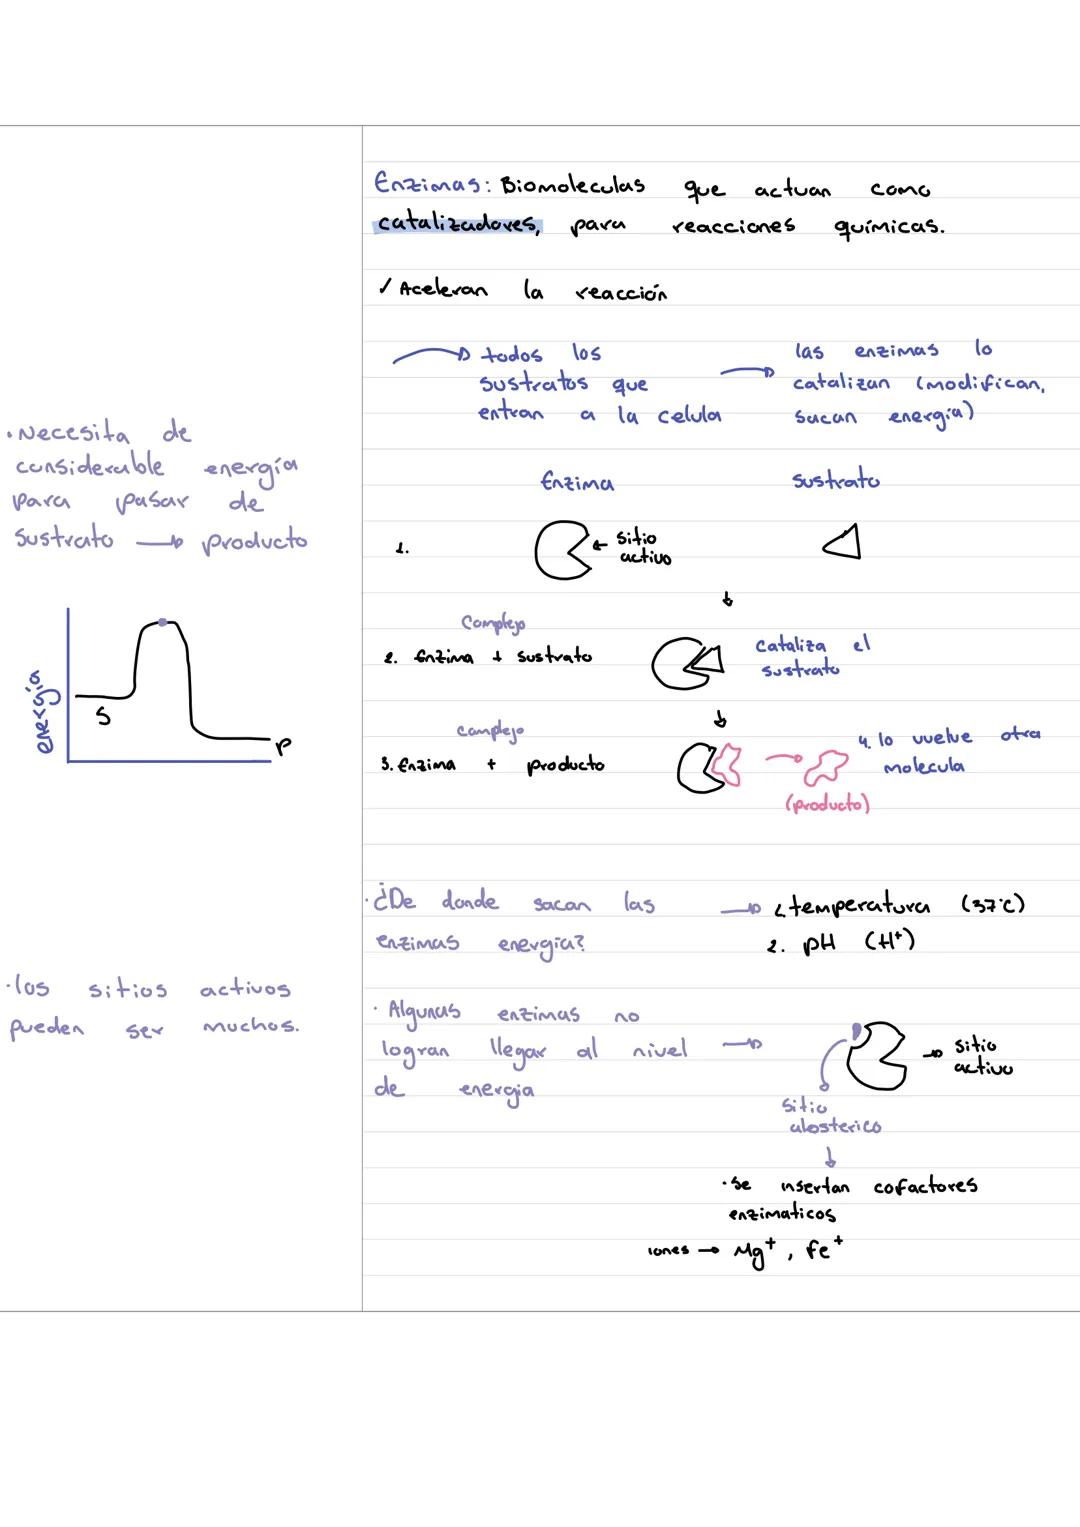 Enzimas: Biomoleculas que actuan como
catalizadores, para reacciones químicas.
✓ Aceleran la reacción
todos los
sustratos que
entran a la celula
las enzimas lo
catalizan (modifican,
sacan energía)
• Necesita de
considerable energía
para pasar de
sustrato → producto
Enzima
sustrato
1.
← sitio
activo
Complejo
2. Enzima + sustrato
cataliza el
sustrato
complejo
3. Enzima + producto
4. lo vuelve otra
molecula
(producto)
energía
S
P
· ¿De donde sacan las
enzimas energia?
→ 1. temperatura (37°C)
2. pH (H⁺)
· los sitios activos
pueden ser muchos.
· Algunas enzimas no
logran llegar al nivel →
de energia
→ sitio
activo
sitio
alosterico
· se insertan cofactores
enzimaticos
iones → Mg⁺, Fe⁺